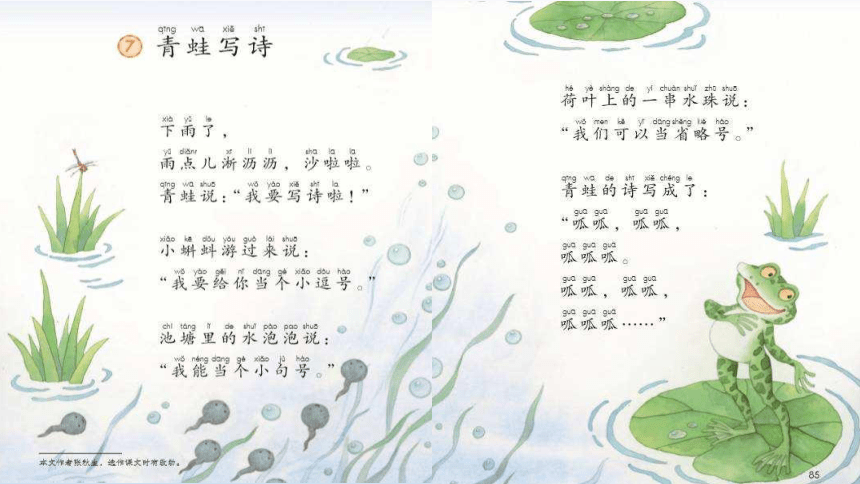 qīng wā xiě shī
7 青蛙写诗
xià yǔ le
下雨了，
yǔ diǎnr xī lì lì shā lā lā
雨点儿淅沥沥，沙啦啦。
qīng wā shuō wǒ yào xiě shī la
青蛙说：“我要写诗啦！”
xiǎo kē dǒu yóu guò lái shuō
小蝌蚪游过来说：
wǒ yào gěi nǐ dāng gè xiǎo dòu hào
“我要给你当个小逗号。”
chí táng lǐ de shuǐ pào pao shuō
池塘里的水泡泡说：
wǒ néng dāng gè xiǎo jù hào
“我能当个小句号。”
本文作者张秋生，选作课文时有改动。
hé yè shàng de yí chuàn shuǐ zhū shuō
荷叶上的一串水珠说：
wǒ men kě yǐ dāng shěng lüè hào
“我们可以当省略号。”
qīng wā de shī xiě chéng le
青蛙的诗写成了：
guā guā guā guā
“呱呱，呱呱，
guā guā guā
呱呱呱。
guā guā guā guā
呱呱，呱呱，
guā guā guā
呱呱呱……”
85